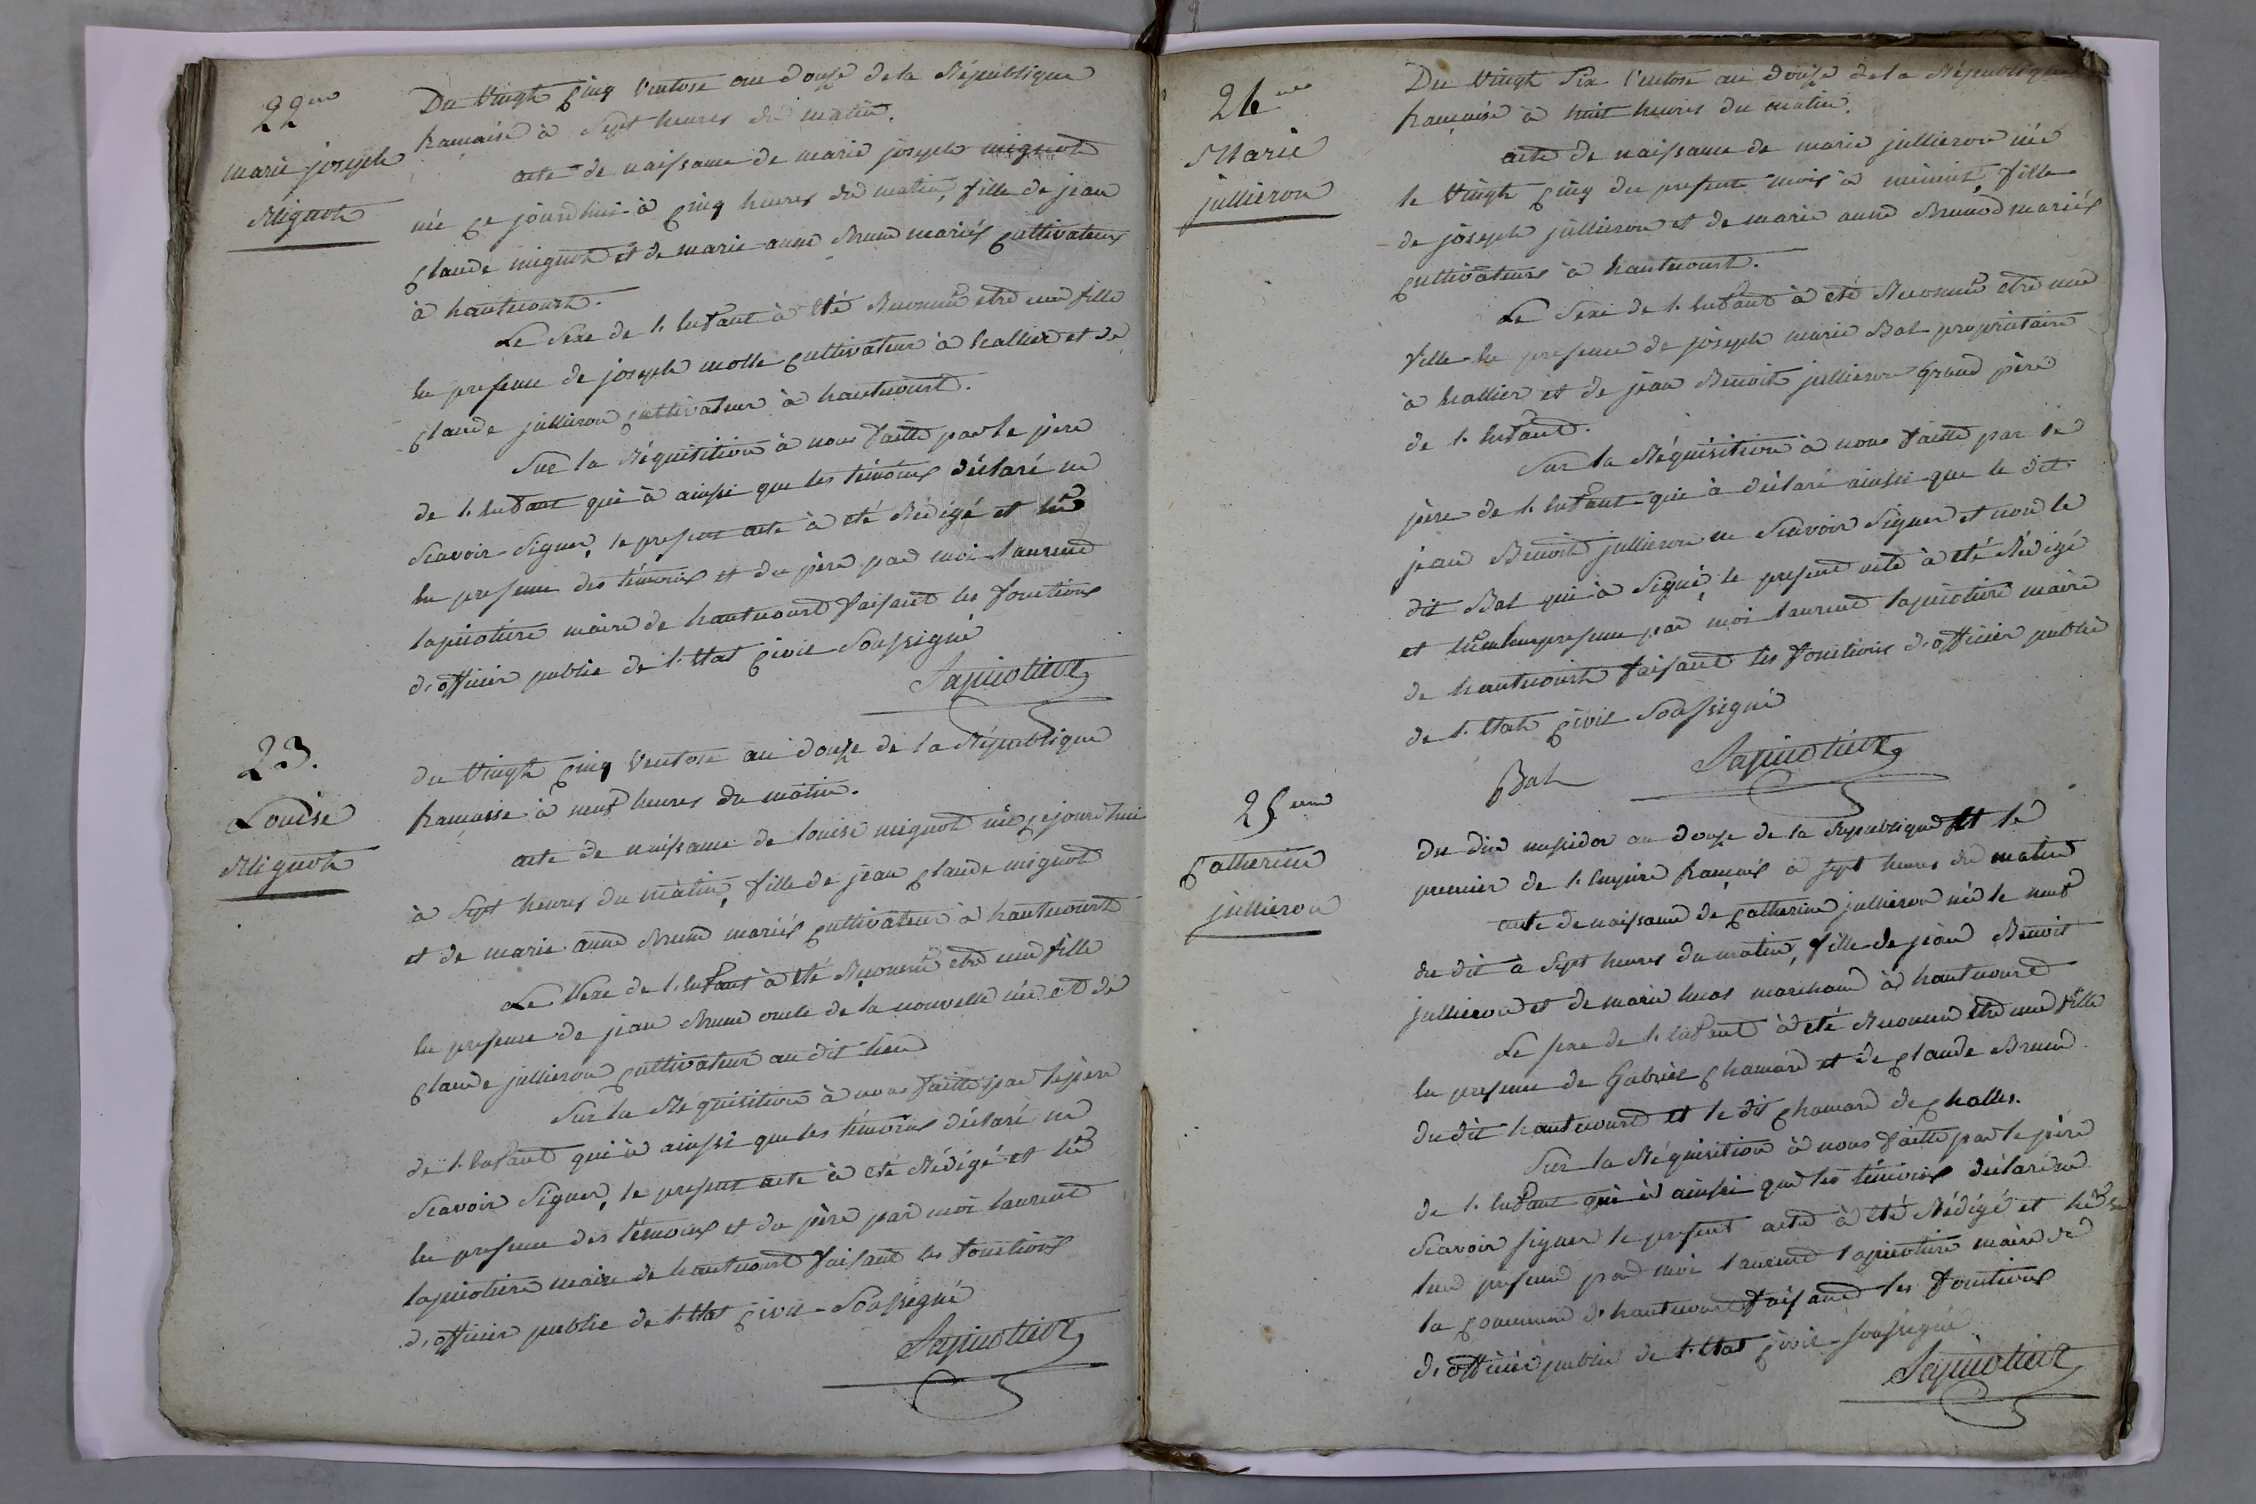 22me
marie joseph
Mignot
Du Vingt Cinq Ventose an douze de la République
francaise à Sept heures du matin.
acte de naissance de marie joseph mignot
née ce jourdhui à Cinq heures du matin, fille de jean
Claude mignot et de marie anne Brund mariés Cultivateurs
à hautecourt.
Le Sexe de l'Enfant à été Reconnu etre une fille
En presence de joseph molle Cultivateur à hallier et de
Claude jullieron Cultivateur à hautecourt.
Sur la Réquisition à nous faitte par le père
de l'Enfant qui à ainsi que les témoins déclaré ne
Scavoir Signer, le present acte à été Rédigé et lu
En presence des témoins et du père par moi laurent
lapicotiere maire de hautecourt faisant les fonctions
d'officier public de l'Etat Civil Soussigné
Lapicotiere
23.
Louise
Mignot
du Vingt Cinq Ventose an douze de la République
francaisse à neuf heures du matin.
acte de naissance de louise mignot née cejourdhui
à Sept heures du matin, fille de jean Claude mignot
et de marie anne Brund mariés Cultivateur à hautecourt
Le Sexe de l'Enfant à été Reconnu etre une fille
En presence de jean Brund oncle de la nouvelle née et de
Claude jullieron Cultivateur au dit lieu
Sur la Réquisition à nous faitte par le père
de l'Enfant qui à ainsi que les témoins déclaré ne
Scavoir Signer, le present acte à été Rédigé et lu
En presence des témoins et du père par moi laurent
lapicotiere maire de hautecourt faisant les fonctions
d'officier public de l'Etat Civil Soussigné
Lapicotiere
24me
Marie
jullieron
Du Vingt Six Ventose an douze de la République
francaise à huit heures du matin.
acte de naissance de marie jullieron née
le Vingt Cinq du present mois à minuit, fille
de joseph jullieron et de marie anne Brunod mariés
Cultivateurs à hautecourt.
Le Sexe de l'Enfant à été Reconnu etre une
fille En presence de joseph marie Bal propriétaire
à hallier et de jean Benoit jullieron Grand père
de l'Enfant.
Sur la Réquisition à nous faitte par le
père de l'Enfant qui à déclaré ainsi que le dit
jean Benoit jullieron ne Scavoir Signer et non le
dit Bal qui à Signé, le present acte à été Rédigé
et lu en leur presence par moi laurent lapicotiere maire
de hautecourt faisant les fonctions d'officier public
de l'Etat Civil Soussigné
Bal Lapicotiere
25me
Catherine
jullieron
du dix messidor an douze de la Republique et le
premier de l'Empire francais à sept heures du matin
acte de naissance de Catherine jullieron née le neuf
du dit à Sept heures du matin, fille de jean Benoit
jullieron et de marie lucas marchand à hautecourt
Le sexe de l'Enfant à été Reconnu etre une fille
En presence de Gabriel Chamard et de Claude Brund
du dit hautecourt et le dit Chamard de Challes.
Sur la Réquisition à nous faitte par le père
de l'Enfant qui à ainsi que les témoins déclaré ne
Scavoir signer le present acte à été Rédigé et lu En
leur presence par moi laurent lapicotiere maire de
la Commune d'hautecourt faisant les fonctions
d'officier public de l'Etat Civil soussigné
Lapicotiere